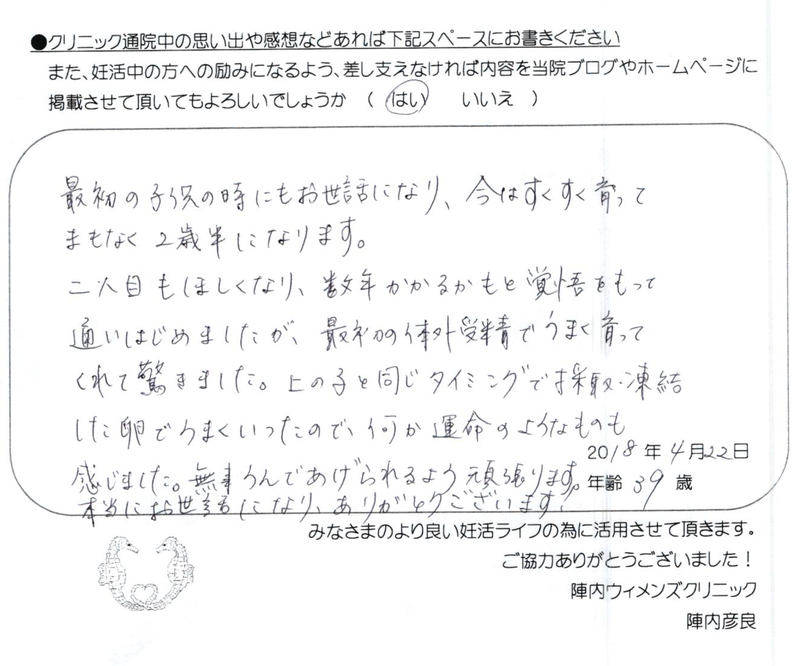 ●クリニック通院中の思い出や感想などあれば下記スペースにお書きください
また、妊活中の方への励みになるよう、差し支えなければ内容を当院ブログやホームページに
掲載させて頂いてもよろしいでしょうか （ はい いいえ ）
最初の子供の時にもお世話になり、今はすくすく育って
まもなく2歳半になります。
二人目もほしくなり、数年かかるかもと覚悟をもって
通いはじめましたが、最初の体外受精でうまく育って
くれて驚きました。上の子と同じタイミングで採取・凍結
した卵でうまくいったので、何か運命のようなものも
感じました。無事うんであげられるよう頑張ります。
本当にお世話になり、ありがとうございます！
2018年4月22日
年齢 39 歳
みなさまのより良い妊活ライフの為に活用させて頂きます。
ご協力ありがとうございました！
陣内ウィメンズクリニック
陣内彦良